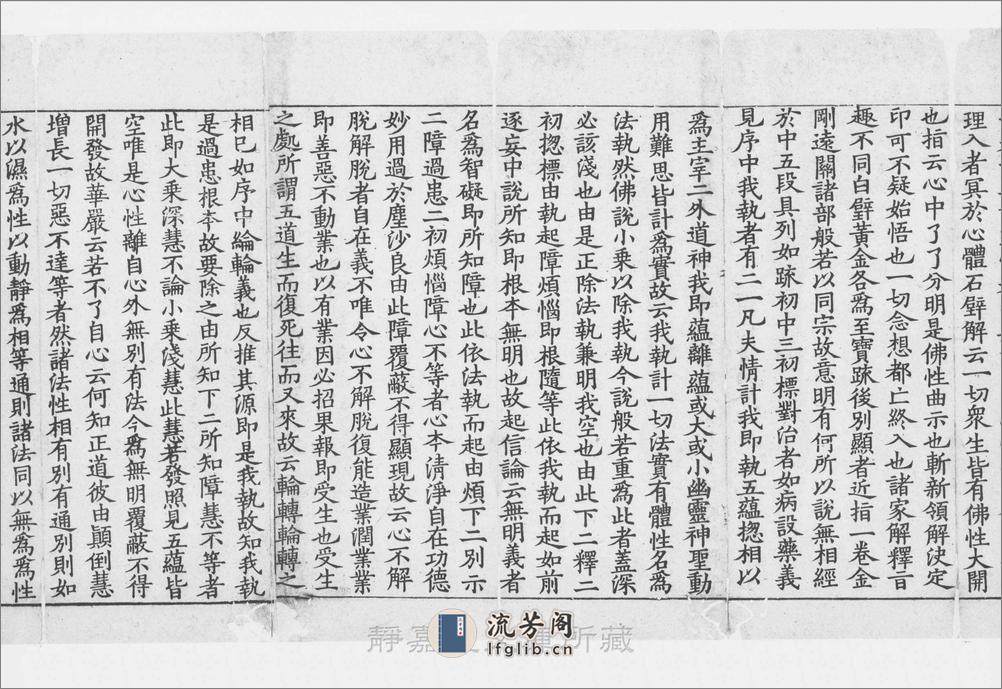 理入者冥於心體石壁解云一切衆生皆有佛性大開
也指云心中了了分明是佛性曲示也斬新領解決定
印可不疑始悟也一切念想都亡終入也諸家解釋言
趣不同白璧黃金各爲至寶踈後別顯者近指一卷金
剛遠關諸部般若以同宗故意明有何所以說無相經
於中五段具列如踈初中三初標對治者如病設藥義
見序中我執者有二一凡夫情計我即執五蘊揔相以
爲主宰二外道神我即蘊離蘊或大或小幽靈神聖動
用難思皆計爲實故云我執計一切法實有體性名爲
法執然佛說小乗以除我執今說般若重爲此者蓋深
必該淺也由是正除法執兼明我空也由此下二釋二
初揔標由執起障煩惱即根隨等此依我執而起如前
逐妄中說所知即根本無明也故起信論云無明義者
名爲智礙即所知障也此依法執而起由煩下二別示
二障過患二初煩惱障心不等者心本清淨自在功德
妙用過於塵沙良由此障覆蔽不得顯現故云心不解
脫解脫者自在義不唯令心不解脫復能造業潤業業
即善惡不動業也以有業因必招果報即受生也受生
之處所謂五道生而復死往而又來故云輪轉輪轉之
相已如序中綸輪義也反推其源即是我執故知我執
是過患根本故要除之由所知下二所知障慧不等者
此即大乗深慧不論小乗淺慧此慧若發照見五蘊皆
空唯是心性離自心外無別有法今爲無明覆蔽不得
開發故華嚴云若不了自心云何知正道彼由顚倒慧
增長一切惡不達等者然諸法性相有別有通別則如
水以濕爲性以動靜爲相等通則諸法同以無爲爲性
流芳阁
lfglib.cn
靜嘉 所藏